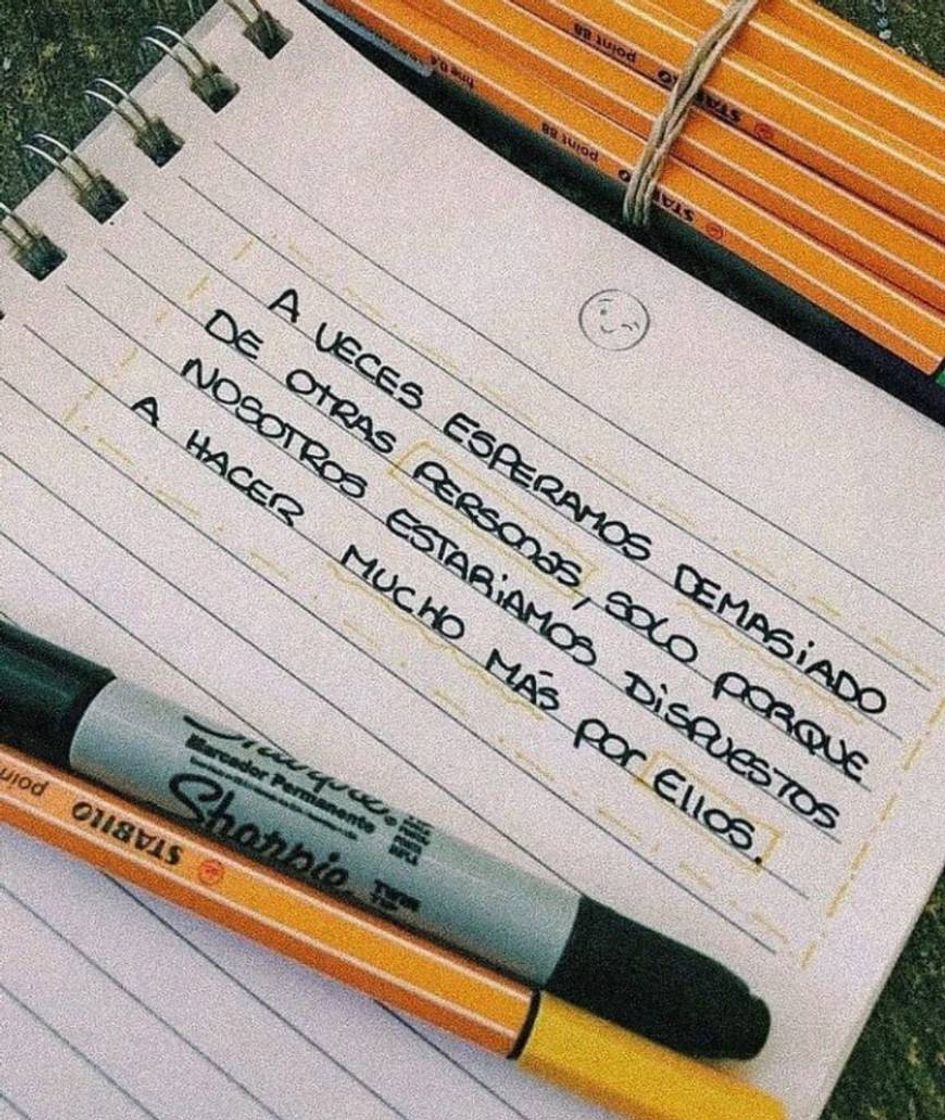 point 88
STABILO
fine 0.4
point 88
STABILO
A VECES ESPERAMOS DEMASIADO
DE OTRAS PERSONAS, SOLO PORQUE
NOSOTROS ESTARIAMOS DISPUESTOS
A HACER MUCHO MÁS POR Ellos.
Marcador Permanente
Sharpie
TWIN
TIP
STABILO
point